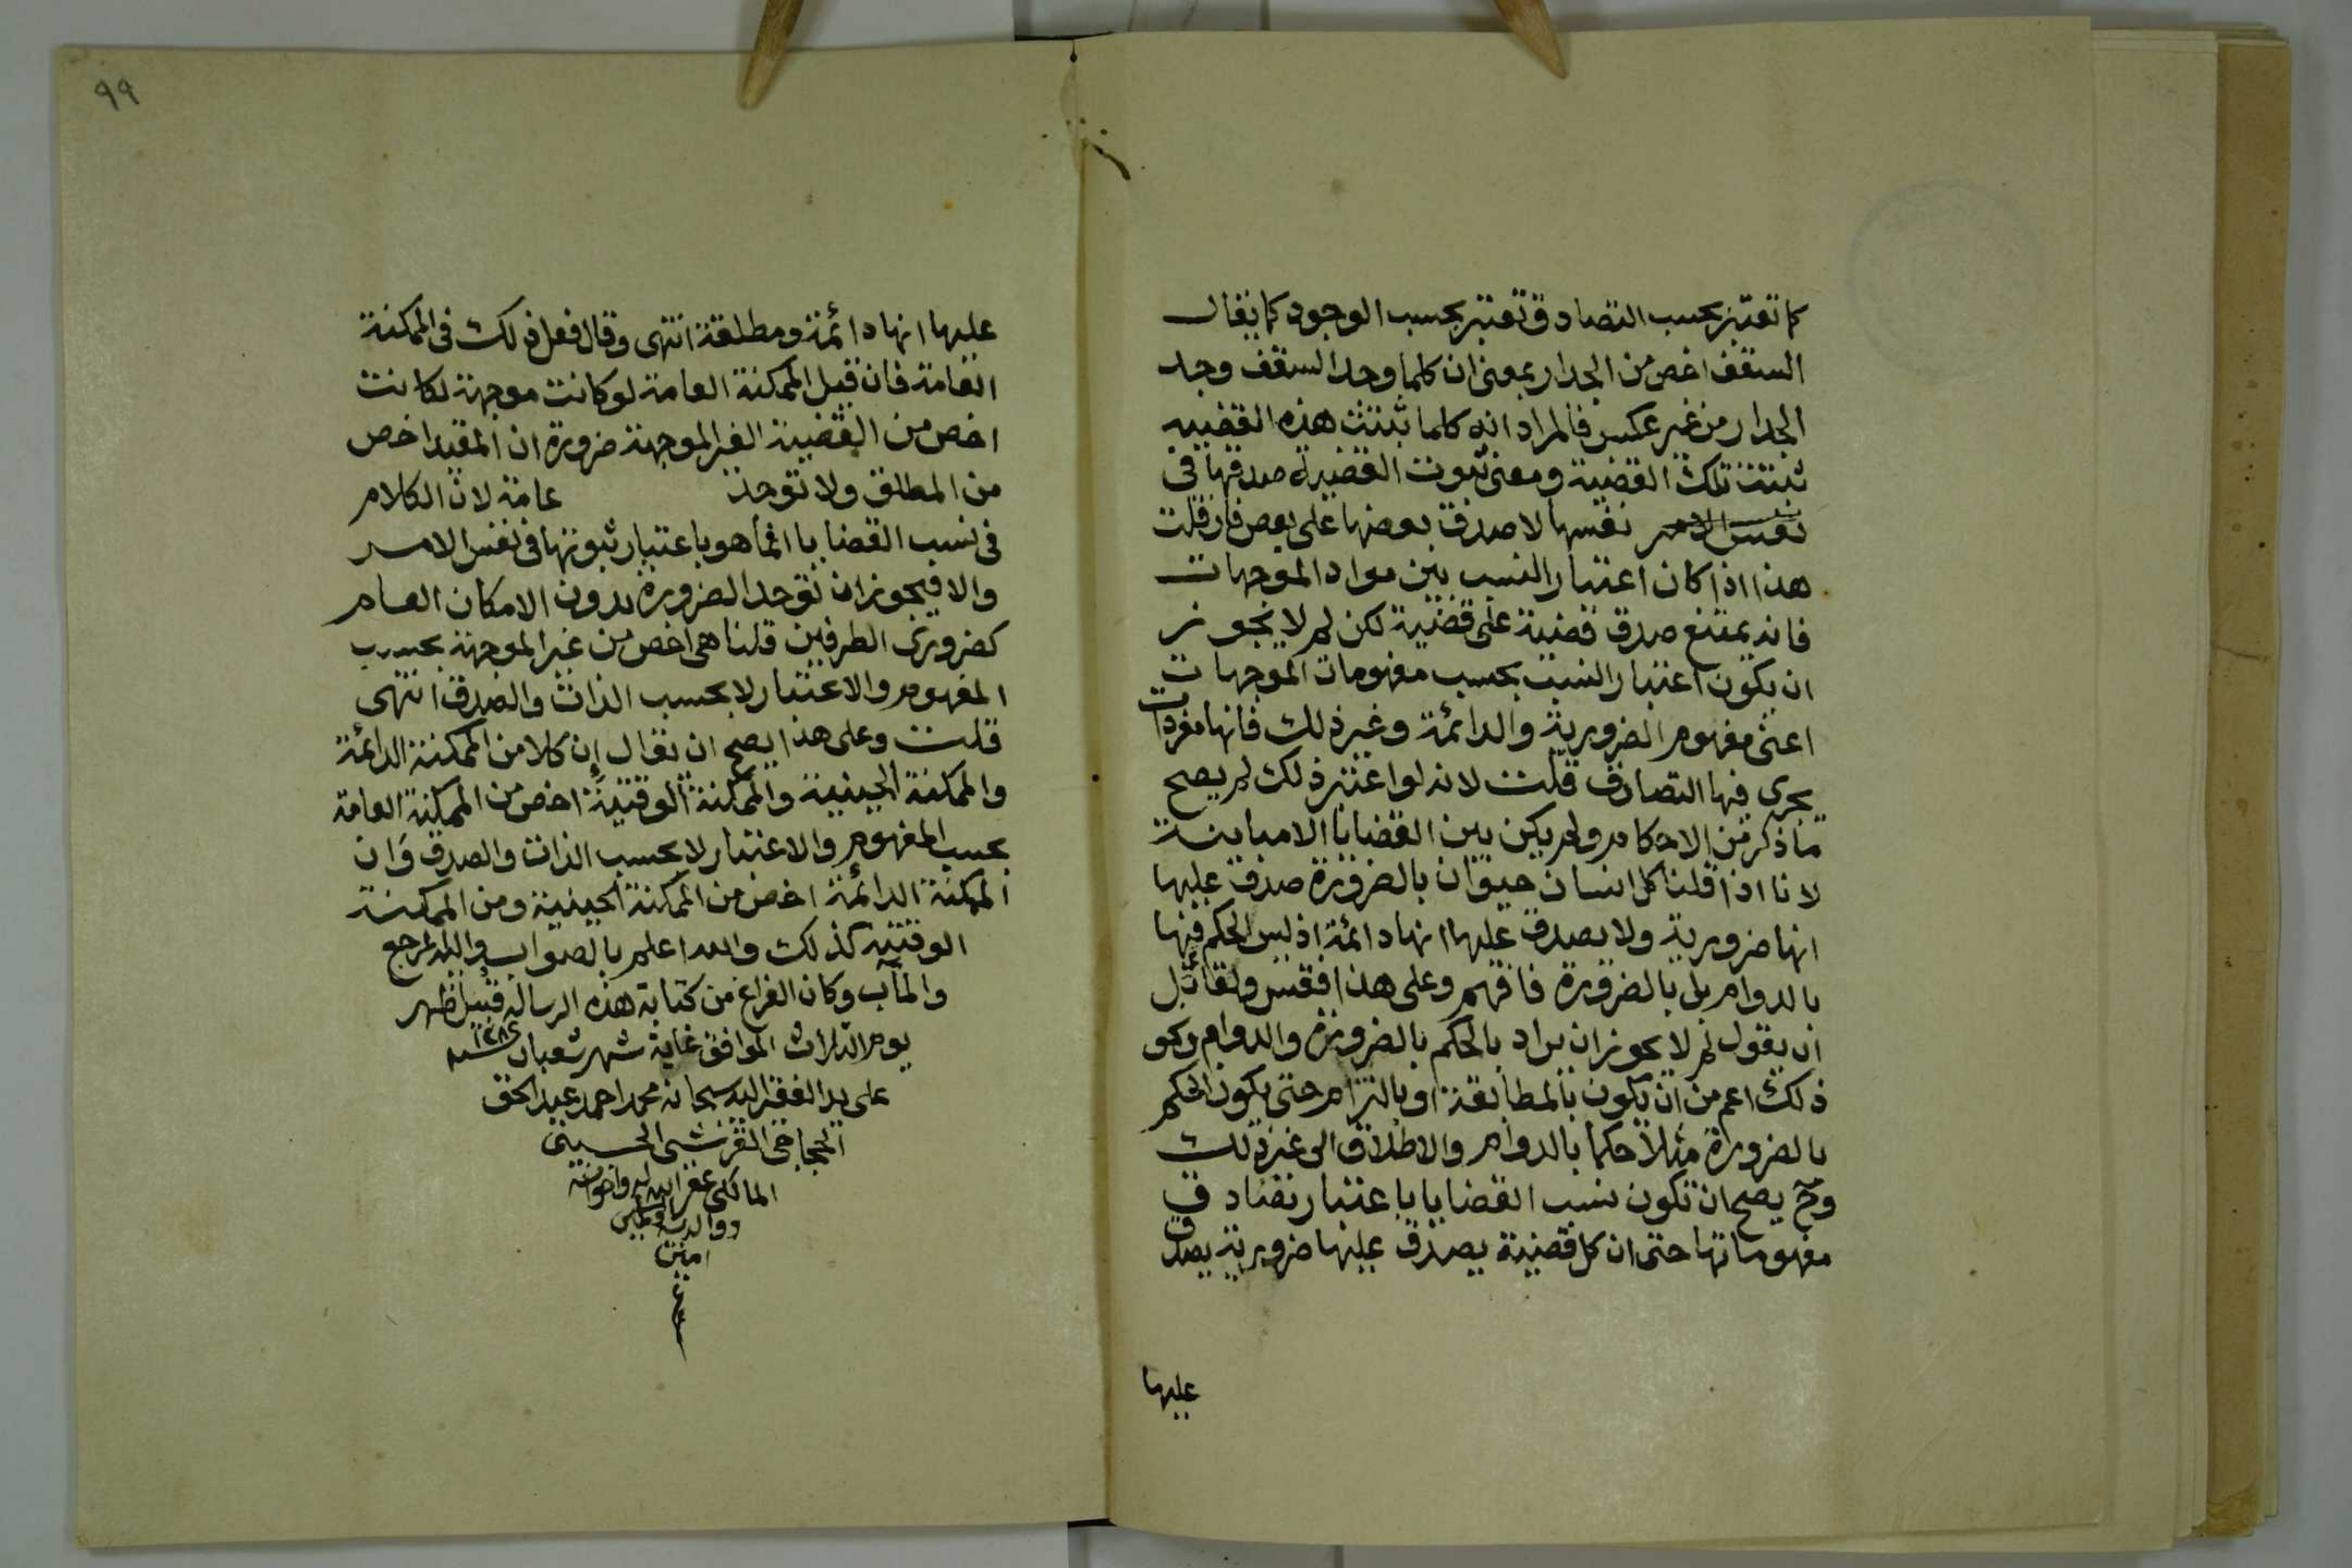 كما تعتبر بحسب التصادق تعتبر بحسب الوجود كما يقال
السقف اخص من الجدار بمعنى ان كلما وجد السقف وجد
الجدار من غير عكس فالمراد انه كلما ثبتت هذه القضيه
ثبتت تلك القضية ومعنى ثبوت القضية صدقها في
نفس الامر نفسها لا صدق بعضها على بعض فان قلت
هذا اذا كان اعتبار النسب بين مواد الموجهات
فانه يمتنع صدق قضية على قضية لكن لم لا يجوز
ان يكون اعتبار النسب بحسب مفهومات الموجهات
اعنى مفهوم الضرورية والدائمة وغير ذلك فانها مفردات
يجرى فيها التصادق قلت لانه لو اعتبر ذلك لم يصح
ما ذكر من الاحكام ولم يكن بين القضايا الا مباينة
لانا اذا قلنا كل انسان حيوان بالضرورة صدق عليها
انها ضرورية ولا يصدق عليها انها دائمة اذ ليس الحكم فيها
بالدوام بل بالضرورة فافهم وعلى هذا فقس ولقائل
ان يقول لم لا يجوز ان يراد بالحكم بالضرورة والدوام ونحو
ذلك اعم من ان يكون بالمطابقة او بالتزام حتى يكون الحكم
بالضرورة مثلا حكما بالدوام والاطلاق الى غير ذلك
وح يصح ان تكون نسب القضايا باعتبار تصادق
مفهوماتها حتى ان كل قضية يصدق عليها ضرورية يصدق
عليها
٩٩
عليها انها دائمة ومطلقة انتهى وقال فعل ذلك في الممكنة
العامة فان قيل الممكنة العامة لو كانت موجهة لكانت
اخص من القضية الغير الموجهة ضرورة ان المقيد اخص
من المطلق ولا توجد عامة لان الكلام
في نسب القضايا انما هو باعتبار ثبوتها في نفس الامر
والا فيجوز ان توجد الضرورة بدون الامكان العام
كضرورى الطرفين قلنا هي اخص من غير الموجهة بحسب
المفهوم والاعتبار لا بحسب الذات والصدق انتهى
قلت وعلى هذا يصح ان يقال إن كلا من الممكنة الدائمة
والممكنة الحينية والممكنة الوقتية اخص من الممكنة العامة
بحسب المفهوم والاعتبار لا بحسب الذات والصدق وان
الممكنة الدائمة اخص من الممكنة الحينية ومن الممكنة
الوقتية كذلك والله اعلم بالصواب واليه المرجع
والمآب وكان الفراغ من كتابة هذه الرساله قبيل ظهر
يوم الثلاث الموافق غاية شهر شعبان سنة ١٢٨٤
على يد الفقير اليه سبحانه محمد احمد عبد الحق
الحجاجى القرشى الحسينى
المالكى غفر الله له واخوانه
ووالديه
امين